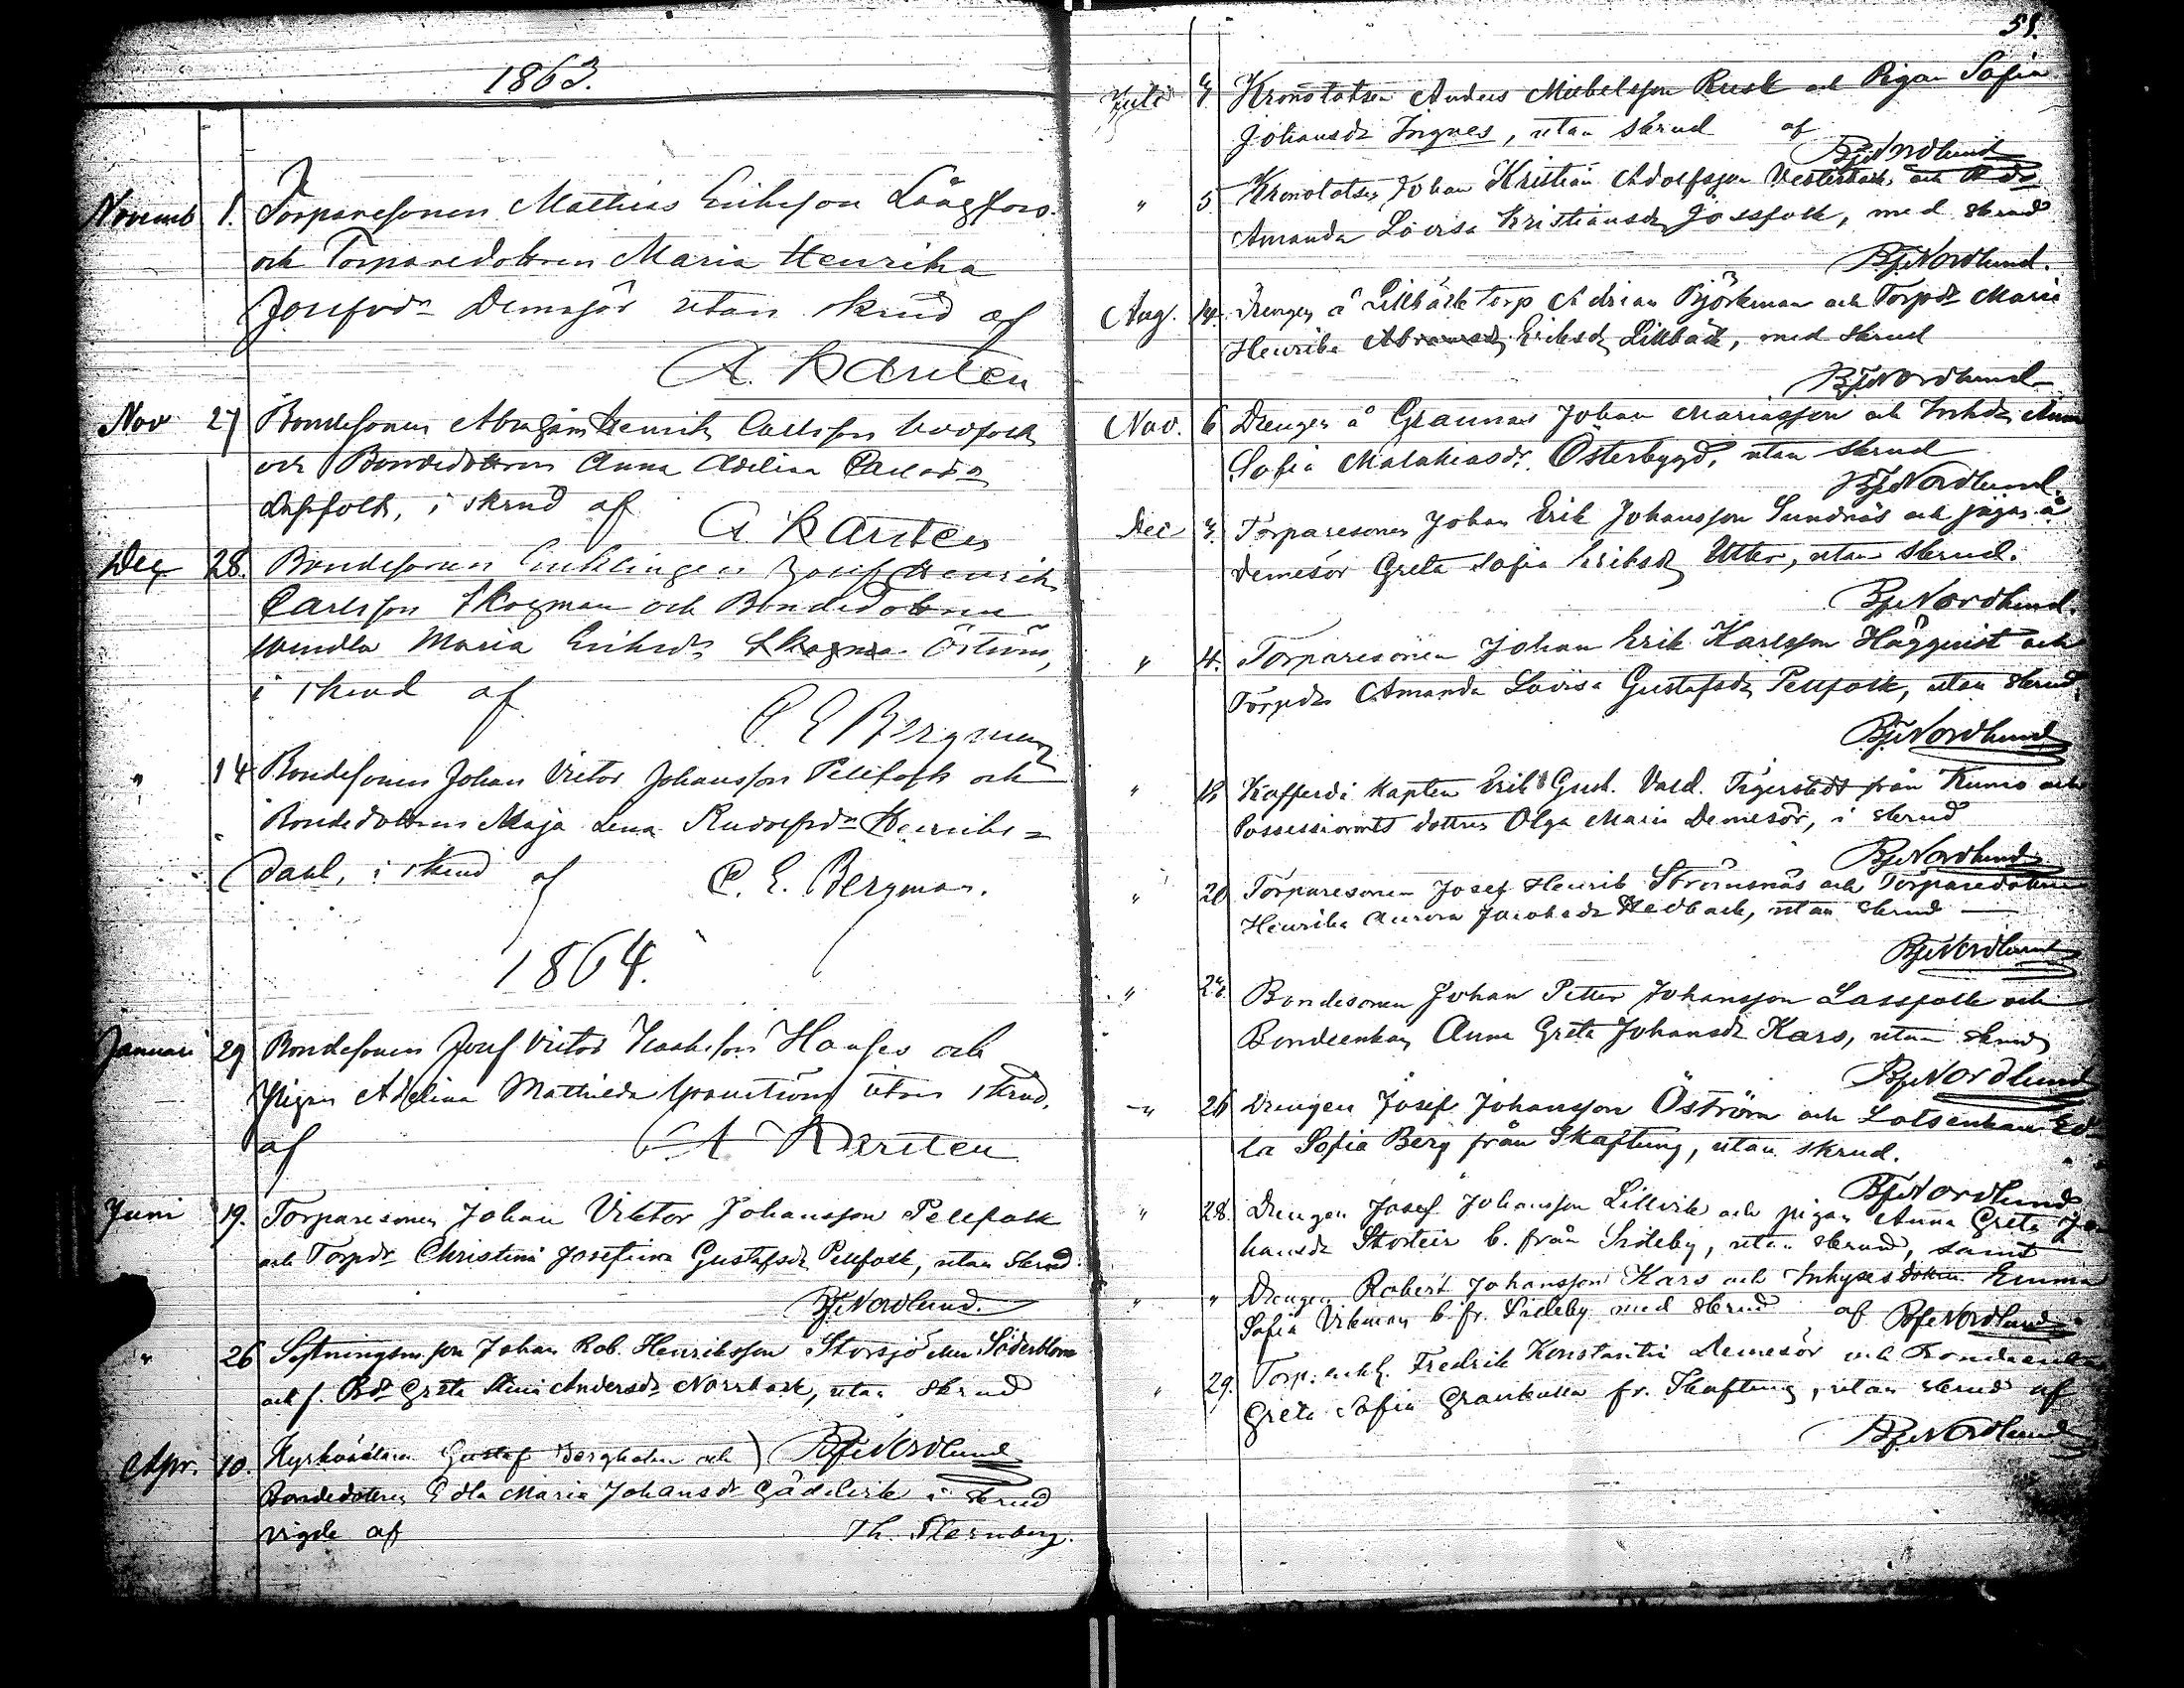 1863.
Novemb 1. Torparesonen Mathias Eriksson Långfors
och Torparedottren Maria Henrika
Josefsdr Demesör utan skrud af
A. Karsten
Nov 27 Bondesonen Abraham Henrik Carlsson
och Bondedottren Anna Adelina Carlsdr
i skrud af
A Karsten
Dec 28. Bondesonen Enklingen Josef Henrik
Carlsson Skogman och Bondedottren
Wendla Maria Eriksdr Öström,
i skrud af
C E Bergman
" 14 Bondesonen Johan Victor Johansson Pellfolk och
Bondedottren Maja Lena Rudolfsdr Henriks=
dahl, i skrud af C. E. Bergman.
1864.
Januari 29 Bondesonen Josef Victor Isaksson och
Pigan Adelina Mathilda Granström utan skrud.
af A Karsten
Juni 19. Torparesonen Johan Viktor Johansson Pellfolk
och Torpdr Christina Josefina Gustafsdr Pellfolk, utan skrud.
BjeNordlund.
" 26 son Johan Rob. Henriksson Storsjö eller Söderblom
och f. Bdr Greta Stina Andersdr Norrback, utan skrud
Apr. 10. Kyrkovärden Gustaf Bergholm och ) BjeNordlund
Bondedottren Edla Maria Johansdr i skrud
vigde af Th. Sternberg.
51.
Juli 4 Kronolotsen Anders Mickelsson Rusk och Pigan Sofia
Johansdr Ingnes, utan skrud af
BjeNordlund
" 5. Kronolotsen Johan Kristian Adolfsson Vesterback och
Amanda Lovisa Kristiansdr Jossfolk, med skrud
BjeNordlund.
Aug. 14. Drengen å Lillbäck torp Adrian Björkman och Torpdr Maria
Henrika Abramsdr Eriksdr Lillbäck, med skrud
BjeNordlund
Nov. 6 Drengen å Grannas Johan Mariasson och Inhdr Anna
Sofia Malakiasdr. Österbygd, utan skrud
BjeNordlund.
Dec 4. Torparesonen Johan Erik Johansson Sundnäs och pigan å
Demesör Greta Sofia Eriksdr Utter, utan skrud.
BjeNordlund.
" 4. Torparesonen Johan Erik Karlsson Häggqvist och
Torpdr Amanda Lovisa Gustafsdr Pellfolk, utan skrud,
BjeNordlund
" Kofferdi kapten Erik Gust. Vald. Tigerstedt från Kumo och
Possessionats dottren Olga Maria Demesör, i skrud
BjeNordlund
" 20 Torparesonen Josef Henrik Strömsnäs och Torparedottren
Henrika Aurora Jacobsdr Hedback, utan skrud
BjeNordlund
" 26. Bondesonen Johan Petter Johansson Lassfolk och
Bondeenkan Anna Greta Johansdr Kars, utan skrud
BjeNordlund
" 26 Drengen Josef Johansson Öström och Lotsenkan Ed-
la Sofia Berg från Skaftung, utan skrud.
BjeNordlund
" 28. Drengen Josef Johansson Lillvik och pigan Anna Greta Jo
hansdr Storteir b. från Sideby, utan skrud, samt
" " Drengen Robert Johansson Kars och Inhysesdottren Emma
Sofia Vikman b. fr. Sideby med skrud af BjeNordlund
" 29. Torp. enkl. Fredrik Konstantin Demesör och Bondeenkan
Greta Sofia Grankulla fr. Skaftung, utan skrud af
BjeNordlund